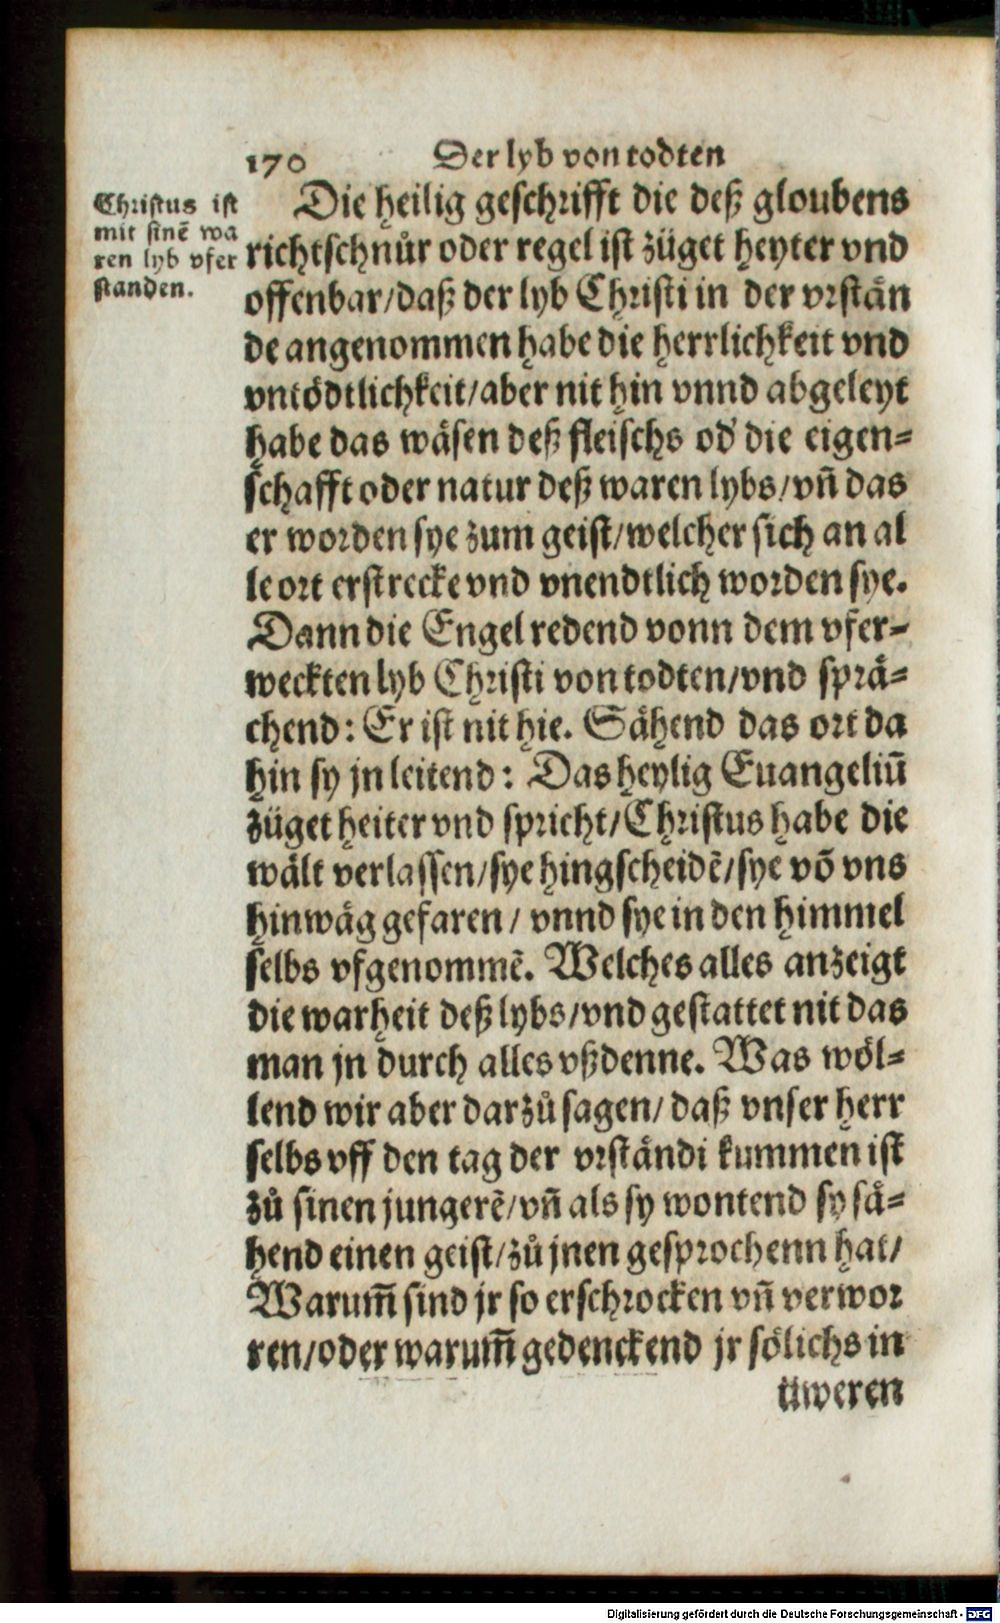 170 Der lyb von todten
Christus ist
mit sinē wa
ren lyb vfer
standen.
Die heilig geschrifft die deß gloubens
richtschnůr oder regel ist züget heyter vnd
offenbar/daß der lyb Christi in der vrstän
de angenommen habe die herrlichkeit vnd
vntödtlichkeit/aber nit hin vnnd abgeleyt
habe das wäsen deß fleischs od' die eigen⸗
schafft oder natur deß waren lybs/vn̄ das
er worden sye zum geist/welcher sich an al
le ort erstrecke vnd vnendtlich worden sye.
Dann die Engel redend vonn dem vfer⸗
weckten lyb Christi von todten/vnd sprä⸗
chend: Er ist nit hie. Sähend das ort da
hin sy jn leitend: Das heylig Euangeliū
züget heiter vnd spricht/Christus habe die
wält verlassen/sye hingscheidē/sye vō vns
hinwäg gefaren/ vnnd sye in den himmel
selbs vfgenommē. Welches alles anzeigt
die warheit deß lybs/vnd gestattet nit das
man jn durch alles vßdenne. Was wöl⸗
lend wir aber darzů sagen/ daß vnser herr
selbs vff den tag der vrständi kummen ist
zů sinen jungerē/vn̄ als sy wontend sy sä⸗
hend einen geist/zů jnen gesprochenn hat/
Warum̄ sind jr so erschrocken vn̄ verwor
ren/oder warum̄ gedenckend jr sölichs in
üweren
Digitalisierung gefördert durch die Deutsche Forschungsgemeinschaft - DFG